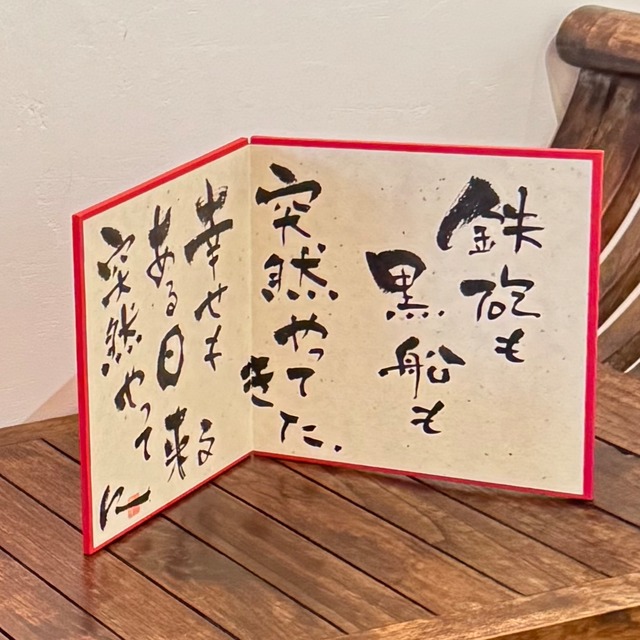 鉄砲も
黒船も
突然やって
きた.
幸せも
ある日
突然やって
来る